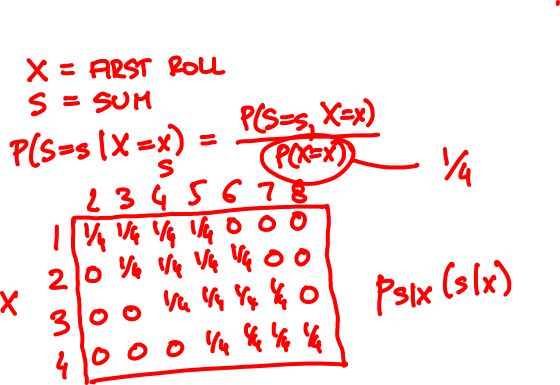 X = FIRST ROLL
S = SUM
P(S=s | X=x) = P(S=s, X=x) / P(X=x) 1/4
s
2 3 4 5 6 7 8
1 1/4 1/4 1/4 1/4 0 0 0
2 0 1/4 1/4 1/4 1/4 0 0
X 3 0 0 1/4 1/4 1/4 1/4 0 PS|X (s|x)
4 0 0 0 1/4 1/4 1/4 1/4